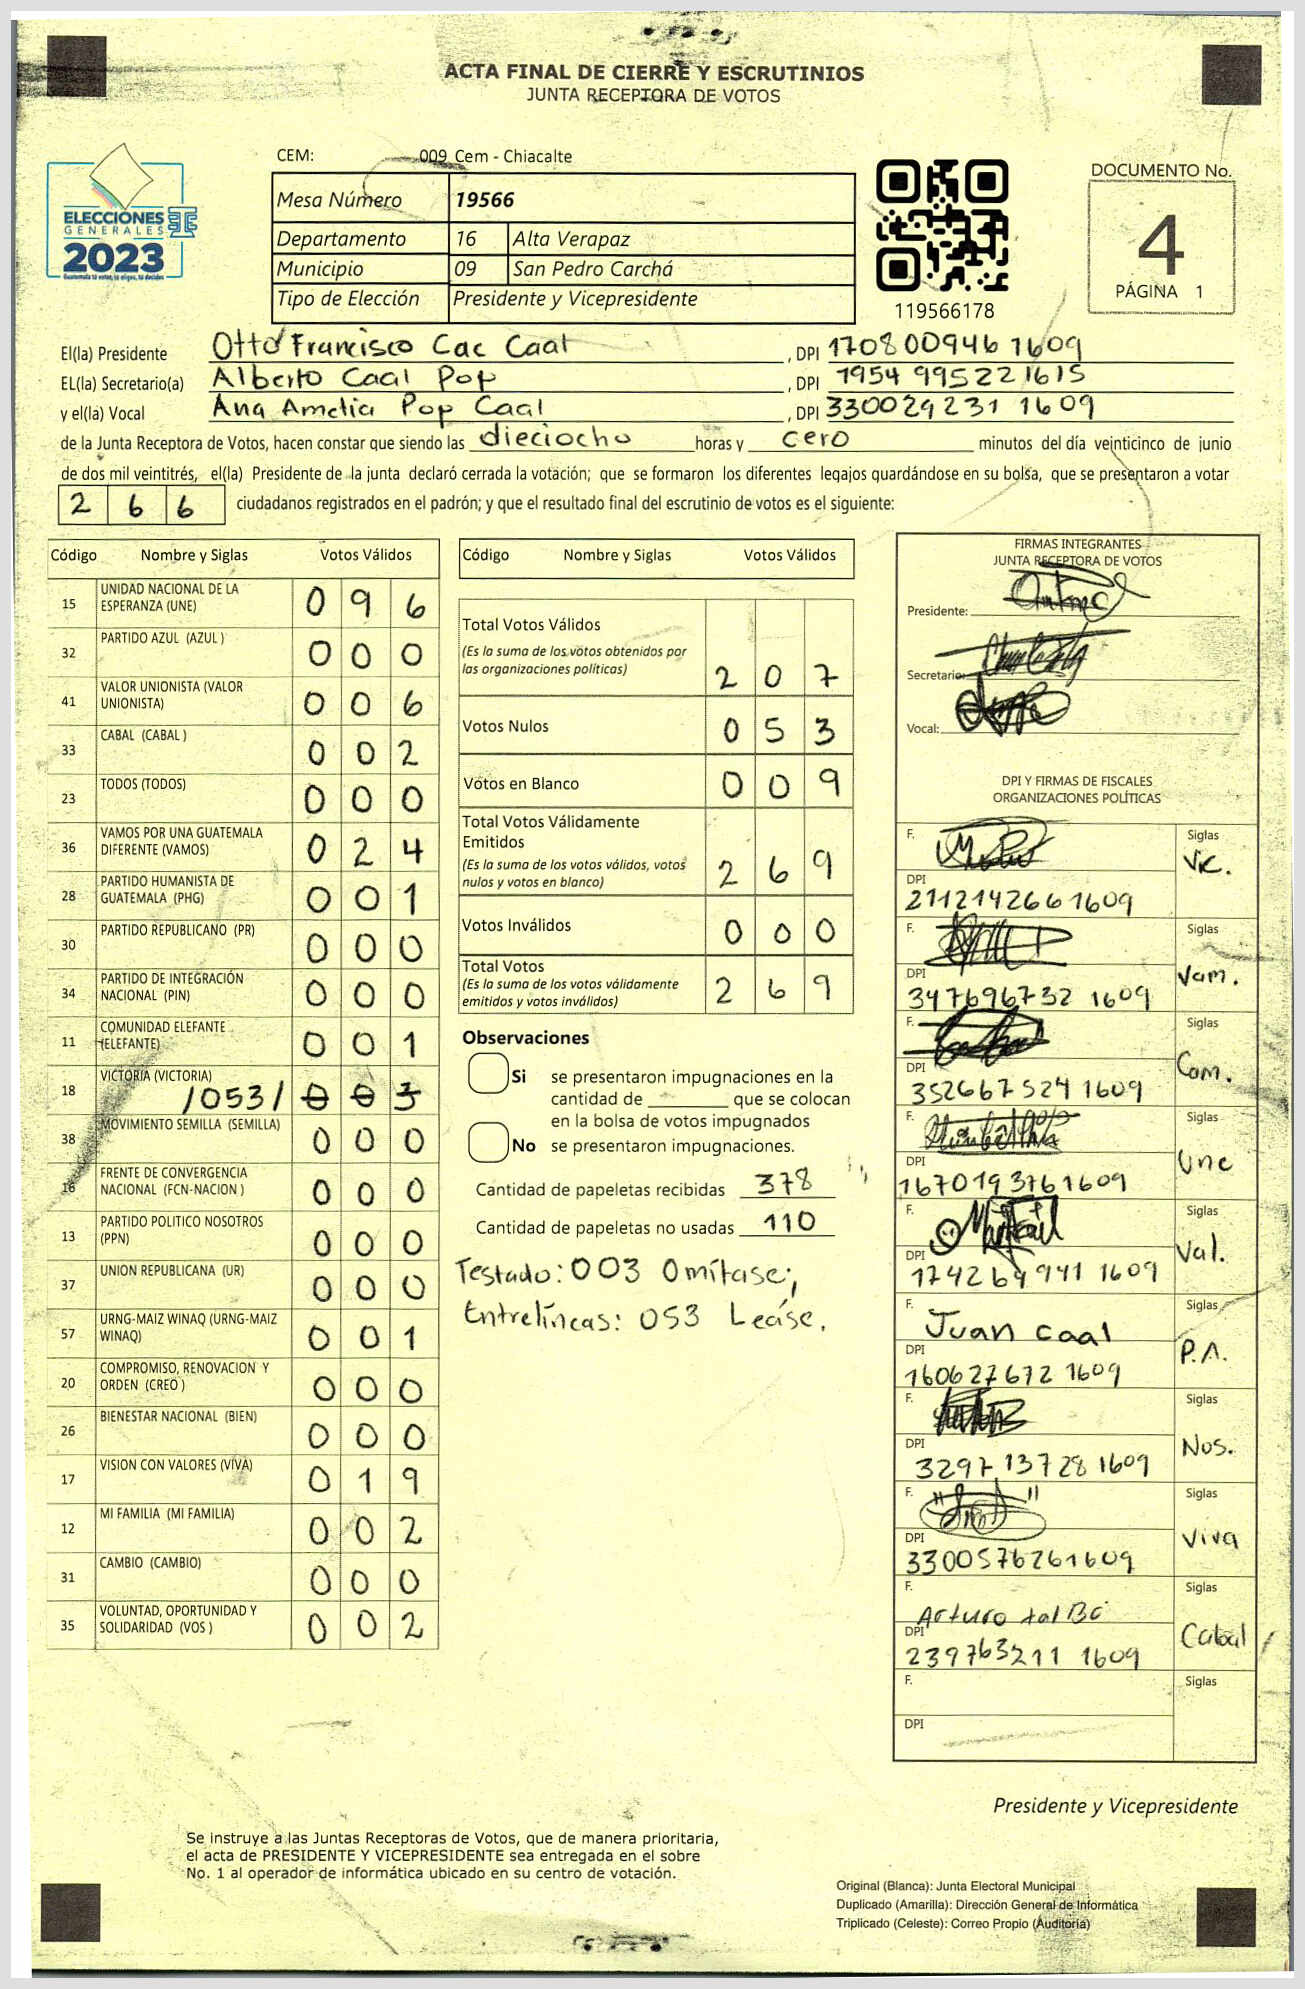 ACTA FINAL DE CIERRE Y ESCRUTINIOS
JUNTA RECEPTORA DE VOTOS
ELECCIONES
GENERALES
2023
CEM: 009 Cem - Chiacalte
Mesa Número 19566
Departamento 16 Alta Verapaz
Municipio 09 San Pedro Carchá
Tipo de Elección Presidente y Vicepresidente
119566178
DOCUMENTO No.
4
PÁGINA 1
El(la) Presidente Otto Francisco Cac Caal , DPI 170800946 1609
EL(la) Secretario(a) Alberto Caal Pop , DPI 1954 99522 1615
y el(la) Vocal Ana Amelia Pop Caal , DPI 330029231 1609
de la Junta Receptora de Votos, hacen constar que siendo las dieciocho horas y cero minutos del día veinticinco de junio
de dos mil veintitrés, el(la) Presidente de la junta declaró cerrada la votación; que se formaron los diferentes legajos guardándose en su bolsa, que se presentaron a votar
2 6 6 ciudadanos registrados en el padrón; y que el resultado final del escrutinio de votos es el siguiente:
Código Nombre y Siglas Votos Válidos
15 UNIDAD NACIONAL DE LA ESPERANZA (UNE) 0 9 6
32 PARTIDO AZUL (AZUL ) 0 0 0
41 VALOR UNIONISTA (VALOR UNIONISTA) 0 0 6
33 CABAL (CABAL ) 0 0 2
23 TODOS (TODOS) 0 0 0
36 VAMOS POR UNA GUATEMALA DIFERENTE (VAMOS) 0 2 4
28 PARTIDO HUMANISTA DE GUATEMALA (PHG) 0 0 1
30 PARTIDO REPUBLICANO (PR) 0 0 0
34 PARTIDO DE INTEGRACIÓN NACIONAL (PIN) 0 0 0
11 COMUNIDAD ELEFANTE (ELEFANTE) 0 0 1
18 VICTORIA (VICTORIA) /053/ 0 0 3
38 MOVIMIENTO SEMILLA (SEMILLA) 0 0 0
16 FRENTE DE CONVERGENCIA NACIONAL (FCN-NACION ) 0 0 0
13 PARTIDO POLITICO NOSOTROS (PPN) 0 0 0
37 UNION REPUBLICANA (UR) 0 0 0
57 URNG-MAIZ WINAQ (URNG-MAIZ WINAQ) 0 0 1
20 COMPROMISO, RENOVACION Y ORDEN (CREO ) 0 0 0
26 BIENESTAR NACIONAL (BIEN) 0 0 0
17 VISION CON VALORES (VIVA) 0 1 9
12 MI FAMILIA (MI FAMILIA) 0 0 2
31 CAMBIO (CAMBIO) 0 0 0
35 VOLUNTAD, OPORTUNIDAD Y SOLIDARIDAD (VOS ) 0 0 2
Código Nombre y Siglas Votos Válidos
Total Votos Válidos
(Es la suma de los votos obtenidos por
las organizaciones políticas) 2 0 7
Votos Nulos 0 5 3
Votos en Blanco 0 0 9
Total Votos Válidamente
Emitidos
(Es la suma de los votos válidos, votos
nulos y votos en blanco) 2 6 9
Votos Inválidos 0 0 0
Total Votos
(Es la suma de los votos válidamente
emitidos y votos inválidos) 2 6 9
Observaciones
Si se presentaron impugnaciones en la
cantidad de ________ que se colocan
en la bolsa de votos impugnados
No se presentaron impugnaciones.
Cantidad de papeletas recibidas 378
Cantidad de papeletas no usadas 110
Testado: 003 Omítase;
Entrelíneas: 053 Leáse.
FIRMAS INTEGRANTES
JUNTA RECEPTORA DE VOTOS
Presidente:
Secretario:
Vocal:
DPI Y FIRMAS DE FISCALES
ORGANIZACIONES POLÍTICAS
F. Siglas
Vic.
DPI
211214266 1609
F. Siglas
Vam.
DPI
347696732 1609
F. Siglas
Com.
DPI
352667524 1609
F. Siglas
Une
DPI
1670193761609
F. Siglas
Val.
DPI
174264941 1609
F. Juan caal Siglas
P.A.
DPI
160627672 1609
F. Siglas
Nos.
DPI
3297 13728 1609
F. Siglas
Viva
DPI
3300576261609
F. Arturo Siglas
Cabal
DPI
239763211 1609
F. Siglas
DPI
Presidente y Vicepresidente
Se instruye a las Juntas Receptoras de Votos, que de manera prioritaria,
el acta de PRESIDENTE Y VICEPRESIDENTE sea entregada en el sobre
No. 1 al operador de informática ubicado en su centro de votación.
Original (Blanca): Junta Electoral Municipal
Duplicado (Amarilla): Dirección General de Informática
Triplicado (Celeste): Correo Propio (Auditoria)